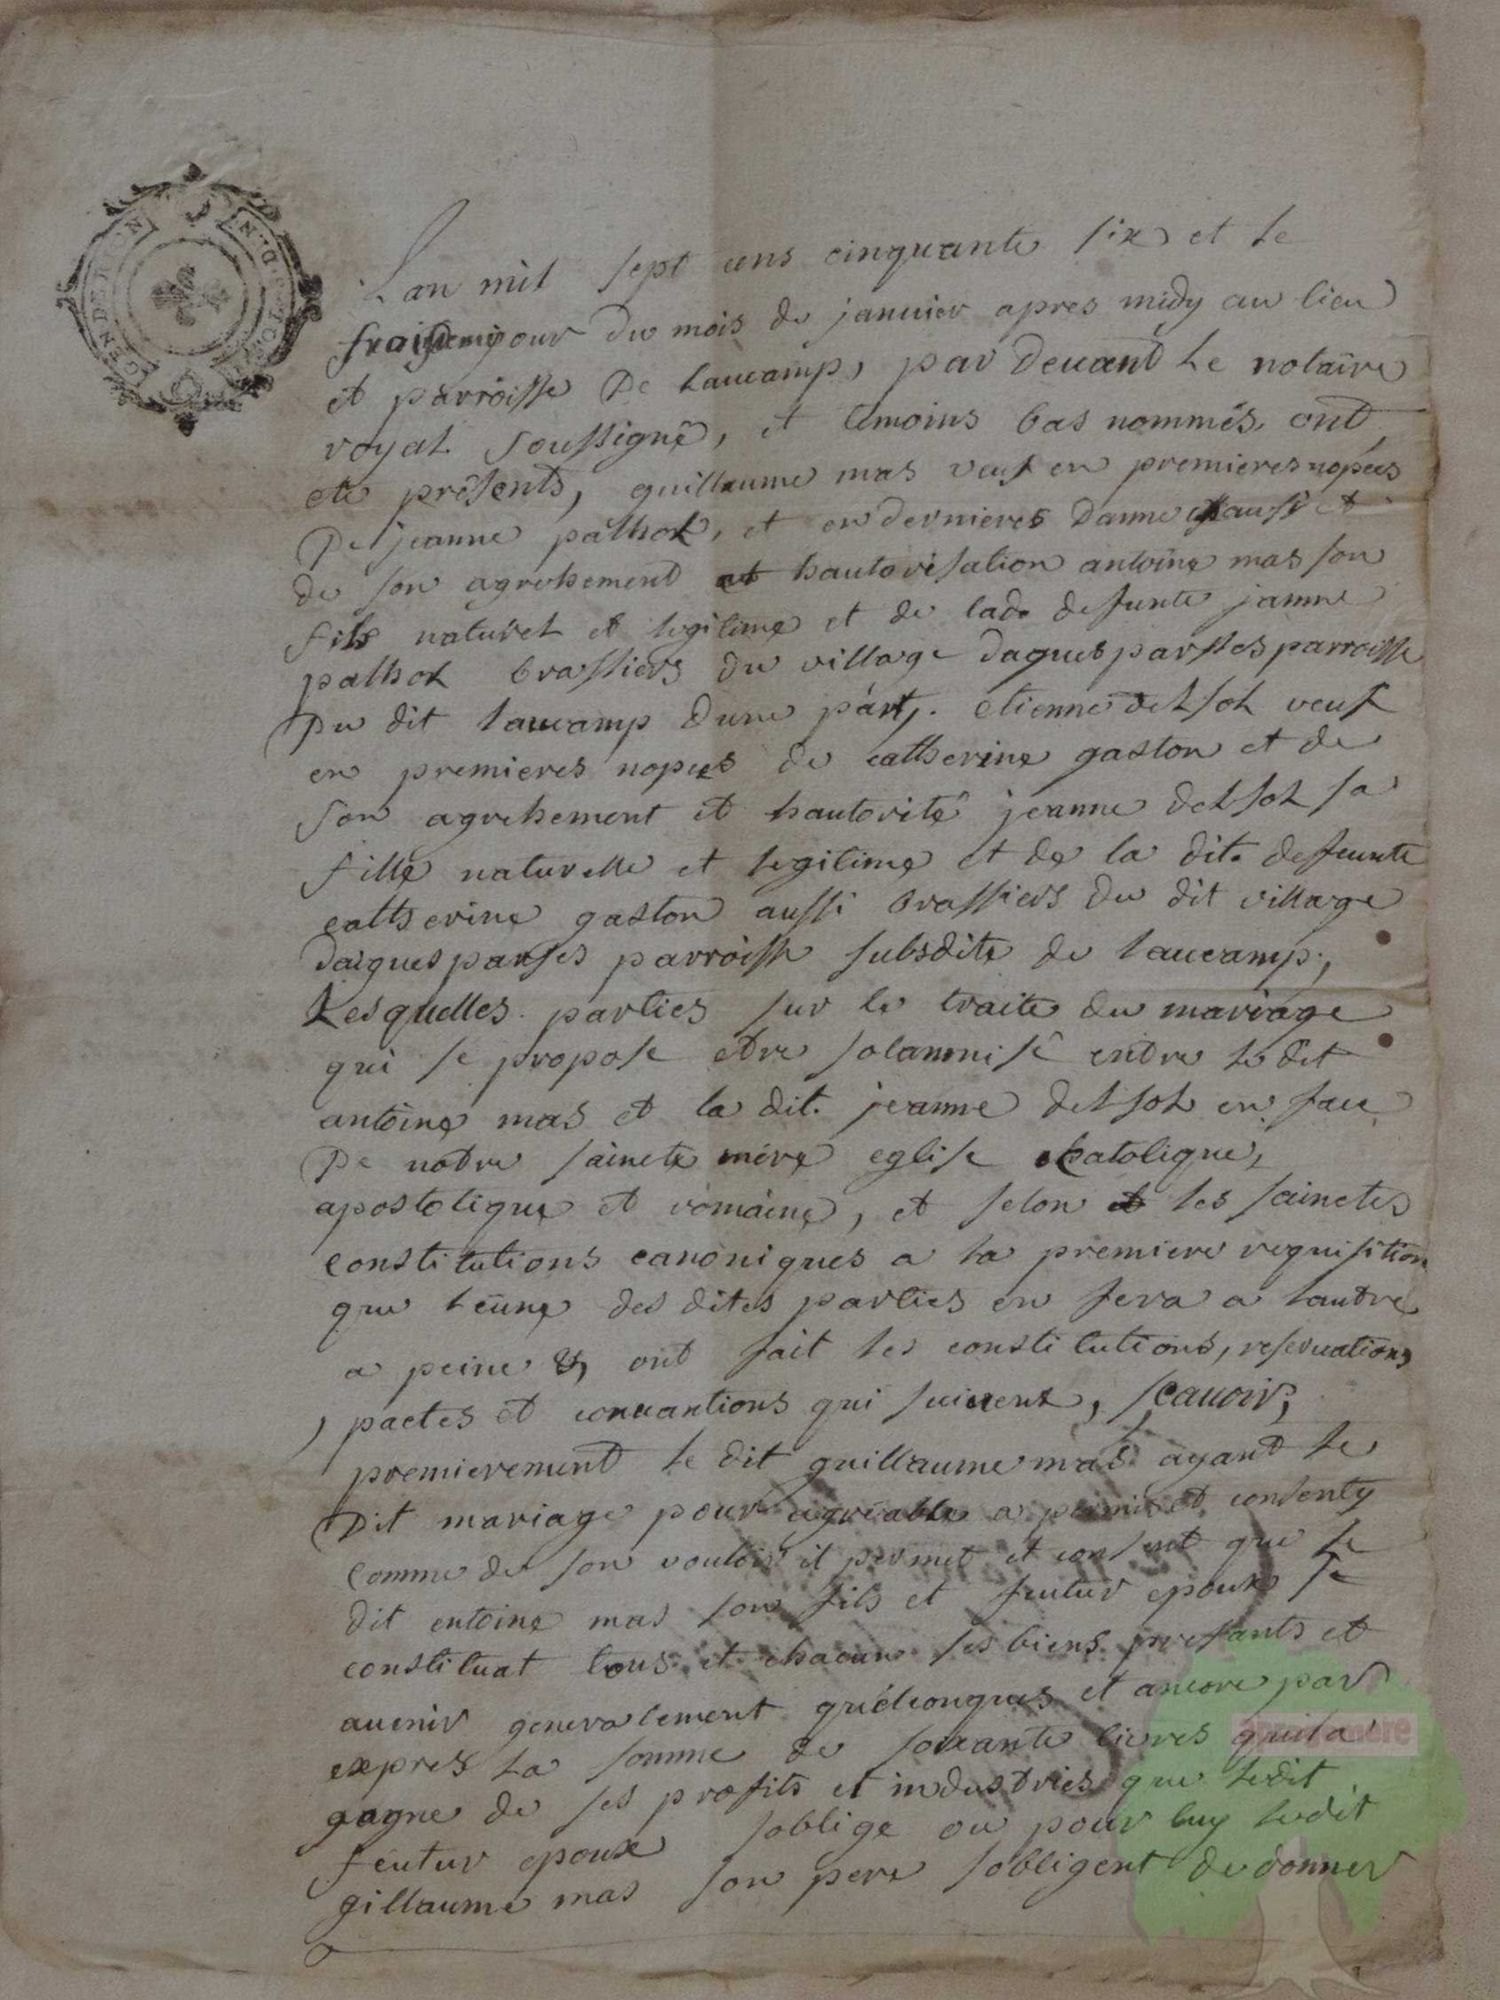 Lan mil sept cens cinquante six et le
jour du mois de janvier apres midy au lieu
et parroisse De Laucamp, par Devant Le notaire
royal soussigné, et temoins bas nommés ont
eté présents, guillaume mas veuf en premieres nopces
De jeanne palhol, et en dernieres Danne et
de son agrehement et hautorisation antoine mas son
fils naturel et legitime et de lad. defunte janne
palhol brassiers du village daguesparsses parroisse
Du dit Laucamp dune part, etienne delsol veuf
en premieres nopces de catherine gaston et de
son agrehement et hautorité jeanne delsol sa
fille naturelle et legitime et de la dite defeunte
catherine gaston aussi brassiers du dit village
daiguesparses parroisse subsdite de Laucamp,
Lesquelles parties sur le traite du mariage
qui se propose etre solamnisé entre le dit
antoine mas et la dit. jeanne delsol en face
De notre sainete mere eglise catolique,
apostolique et romaine, et selon et les sainetes
constitutions canoniques a la premiere requisition
que leune des dites parties en fera a lautre
a peine &, ont fait les constitutions, reservations,
pactes et convantions qui suivent, scavoir,
premierement le dit guillaume mas ayant le
Dit mariage pour agreable a permis et consenty
comme de son vouloir il permet et consent que le
dit entoine mas son fils et feutur epoux se
constituat tous et chacun ses biens presants et
avenir generalement quélconques et ancore par
expres La somme de soixante livres quil a
gagne de ses profits et industries que ledit
feutur epoux soblige ou pour luy ledit
gillaume mas son pere sobligent de donner
GEN DE RION
appelemere